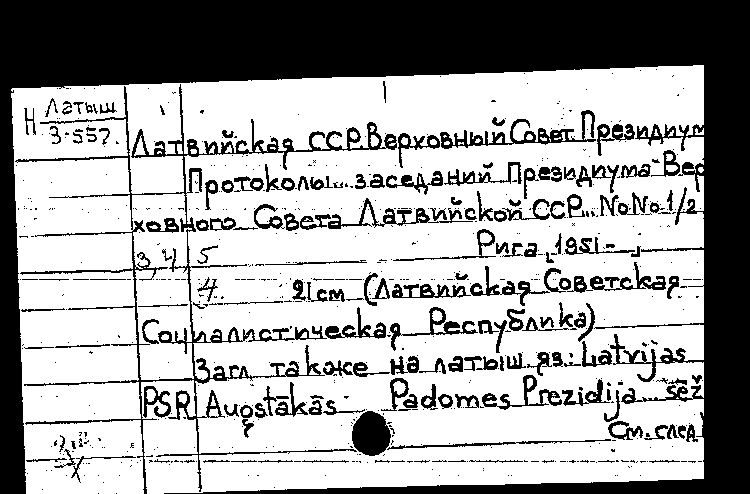 Н Латыш
3-557.
Латвийская ССР. Верховный Совет. Президиум
Протоколы... заседаний Президиума Вер
ховного Совета Латвийской ССР... №№ 1/2
3, 4, 5 Рига, 1951 -
4. 21 см (Латвийская Советская
Социалистическая Республика)
Загл. также на латыш. яз.: Latvijas
PSR Augstākās Padomes Prezidija... sēž
См. след